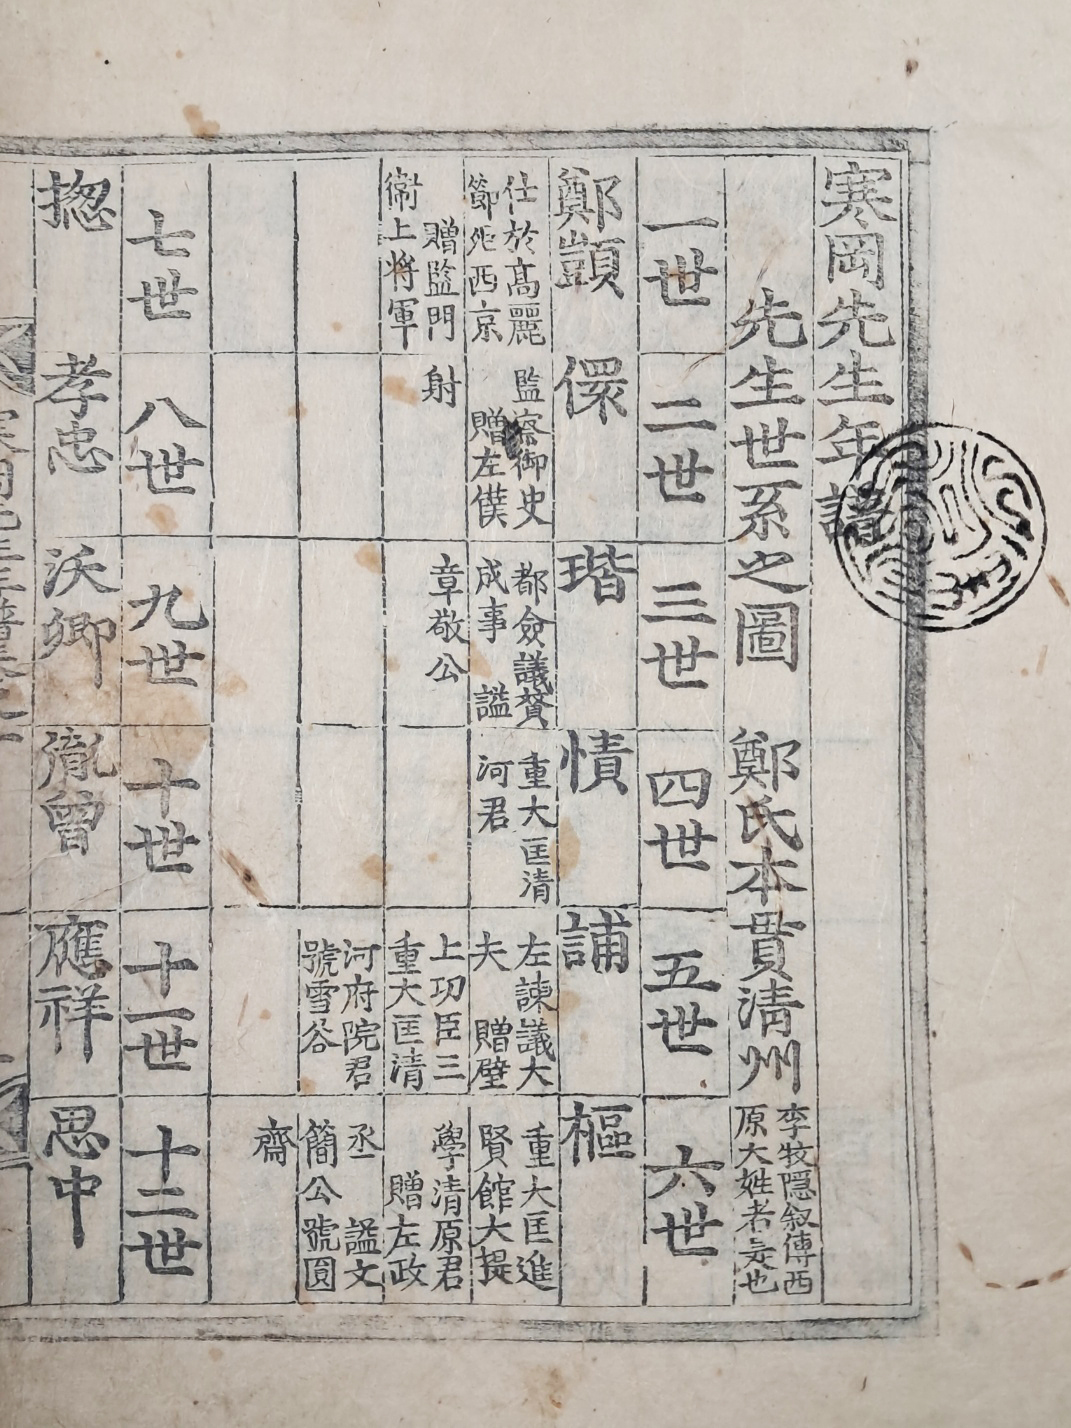 寒岡先生年譜
先生世系之圖 鄭氏本貫清州 李牧隱叙傳西原大姓者妄也
一世 二世 三世 四世 五世 六世
鄭顗 儇 瑎 㥽 誧 樞
仕於高麗節死西京 贈監門衛上將軍
監察御史 贈左僕射
都僉議賛成事 謚章敬公
重大匡清河君
左諫議大夫 贈壁上功臣三重大匡清河府院君號雪谷
重大匡進賢館大提學清原君 贈左政丞 謚文簡公號圓齋
七世 八世 九世 十世 十一世 十二世
揔 孝忠 沃卿 胤曾 應祥 思中